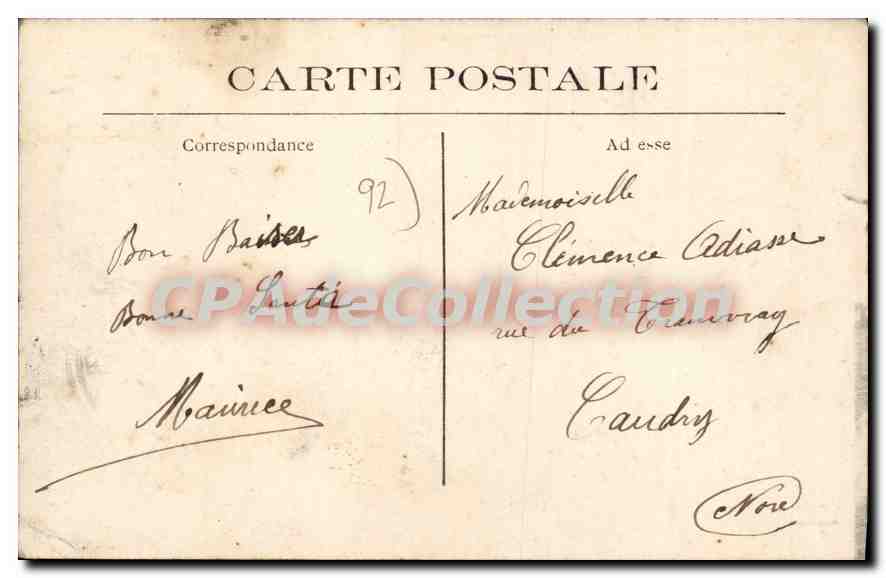 CARTE POSTALE
Correspondance
Ad esse
92)
Bon Baiser
Bonne Santé
Maurice
Mademoiselle
Clémence Adiasse
rue du Tramway
Caudry
Nord
CPAdeCollection.com